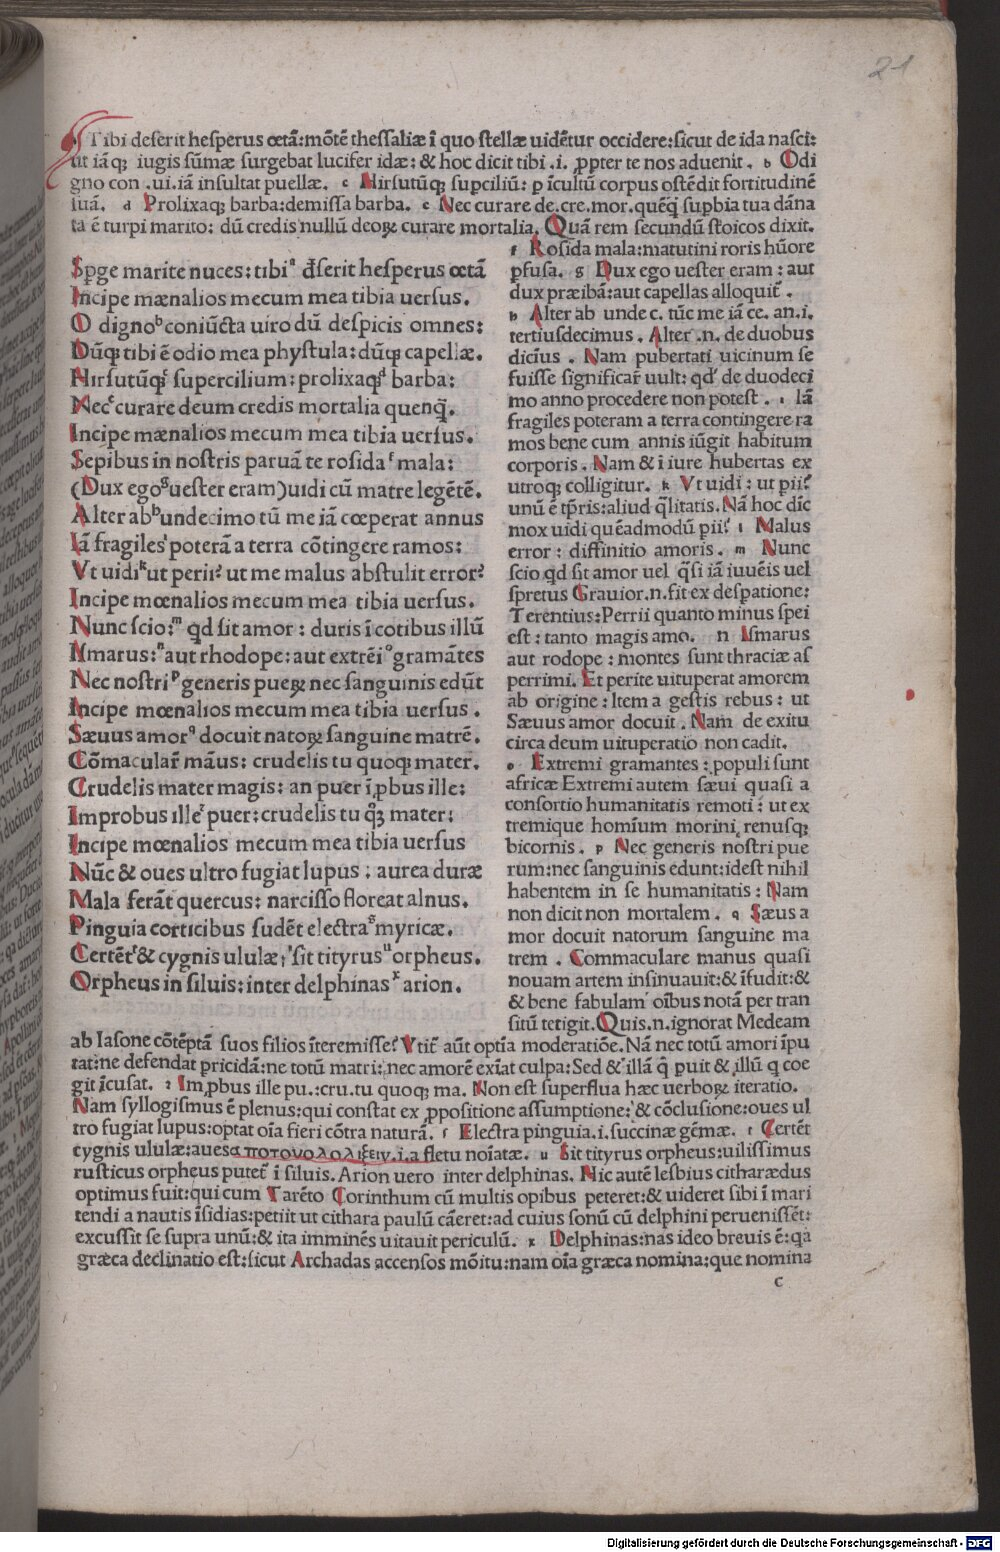 21
Tibi deserit hesperus œtā:mōtē thessaliæ ī quo stellæ uidētur occidere:sicut de ida nasci:
ut iāq; iugis sūmæ surgebat lucifer idæ: & hoc dicit tibi .i. ꝓpter te nos aduenit. b Odi
gno con .ui.iā insultat puellæ. c Hirsutūq; supciliū: p īcultū corpus ostēdit fortitudinē
suā. d Prolixaq; barba:demissa barba. e Nec curare de.cre.mor.quēq̄ supbia tua dāna
ta ē turpi marito: dū credis nullū deoꝝ curare mortalia. Quā rem secundū stoicos dixit.
Spge marite nuces: tibi a dserit hesperus œtā
Incipe mænalios mecum mea tibia uersus.
O digno b coniūcta uiro dū despicis omnes:
Dūq; tibi ē odio mea phystula: dūq; capellæ.
Hirsutūq; c supercilium: prolixaq; d barba:
Nec e curare deum credis mortalia quenq̄.
Incipe mænalios mecum mea tibia uersus.
Sepibus in nostris paruā te rosida f mala:
(Dux ego g uester eram)uidi cū matre legētē.
Alter ab h undecimo tū me iā cœperat annus
Iā fragiles i poterā a terra cōtingere ramos:
Vt uidi k ut perii? ut me malus abstulit error?
Incipe mœnalios mecum mea tibia uersus.
Nunc scio: m qd sit amor: duris ī cotibus illū
Nmarus: n aut rhodope: aut extrēi o gramātes
Nec nostri p generis pueꝝ nec sanguinis edūt
Incipe mœnalios mecum mea tibia uersus.
Sæuus amor q docuit natoꝝ sanguine matrē.
Cōmacular̄ māus: crudelis tu quoq; mater.
Crudelis mater magis: an puer īꝓbus ille:
Improbus ille r puer: crudelis tu qq; mater:
Incipe mœnalios mecum mea tibia uersus
Nūc & oues ultro fugiat lupus; aurea duræ
Mala ferāt quercus: narcisso floreat alnus.
Pinguia corticibus sudēt electra s myricæ.
Certēt t & cygnis ululæ; sit tityrus u orpheus.
Orpheus in siluis: inter delphinas x arion.
f Rosida mala:matutini roris hūore
pfusa. g Dux ego uester eram: aut
dux præibā:aut capellas alloquit̄.
h Alter ab unde c. tūc me iā ce. an.i.
tertiusdecimus. Alter .n. de duobus
dicīus. Nam pubertati uicinum se
fuisse significar̄ uult: qd' de duodeci
mo anno procedere non potest. i Iā
fragiles poteram a terra contingere ra
mos bene cum annis iūgit habitum
corporis. Nam & ī iure hubertas ex
utroq; colligitur. k Vt uidi: ut pii?
unū ē tp̄ris:aliud q̄litatis. Nā hoc dīc
mox uidi quēadmodū pii? l Malus
error: diffinitio amoris. m Nunc
scio qd sit amor uel q̄si iā iuuēis uel
spretus Grauior.n.fit ex despatione:
Terentius:Perrii quanto minus spei
est: tanto magis amo. n Ismarus
aut rodope: montes sunt thraciæ as
perrimi. Et perite uituperat amorem
ab origine: Item a gestis rebus: ut
Sæuus amor docuit. Nam de exitu
circa deum uituperatio non cadit.
o Extremi gramantes: populi sunt
africæ Extremi autem sæui quasi a
consortio humanitatis remoti: ut ex
tremique homīum morini renusq;
bicornis. p Nec generis nostri pue
rum:nec sanguinis edunt:idest nihil
habentem in se humanitatis: Nam
non dicit non mortalem. q Sæus a
mor docuit natorum sanguine ma
trem. Commaculare manus quasi
nouam artem insinuauit:& īfudit:&
& bene fabulam oībus notā per tran
sitū tetigit. Quis.n.ignorat Medeam
ab Iasone cōtēptā suos filios īteremisse? Vtit̄ aūt optīa moderatiōe. Nā nec totū amori īpu
tat:ne defendat pricidā:ne totū matri: nec amorē exīat culpa: Sed & illā q̄ puit & illū q coe
git īcusat. r Imꝓbus ille pu.:cru.tu quoq; ma. Non est superflua hæc uerboꝝ iteratio.
Nam syllogismus ē plenus:qui constat ex ꝓpositione assumptione: & cōclusione:oues ul
tro fugiat lupus:optat oīa fieri cōtra naturā. s Electra pinguia.i.succinæ gēmæ. t Certēt
cygnis ululæ:auesαποτουολολιξειν.i.a fletu noīatæ. u Sit tityrus orpheus:uilissimus
rusticus orpheus putet̄ ī siluis. Arion uero inter delphinas. Hic autē lesbius citharædus
optimus fuit:qui cum Tarēto Corinthum cū multis opibus peteret:& uideret sibi ī mari
tendi a nautis īsidias:petiit ut cithara paulū cāeret:ad cuius sonū cū delphini peruenissēt:
excussit se supra unū:& ita imminēs uitauit periculū. x Delphinas:nas ideo breuis ē:qa
græca declinatio est:sicut Archadas accensos mōitu:nam oīa græca nomina:que nomina
c
Digitalisierung gefördert durch die Deutsche Forschungsgemeinschaft - DFG